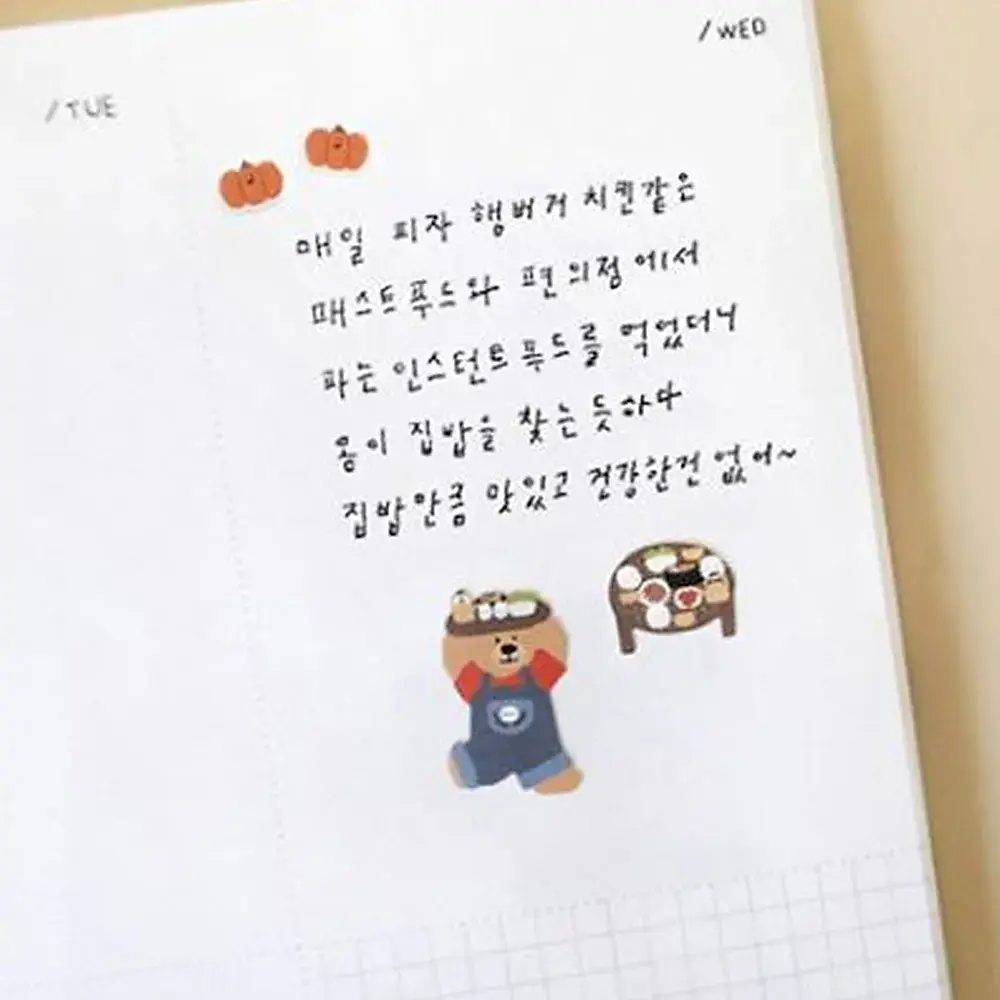 /TUE
/WED
매일 피자 햄버거 치킨같은
패스트푸드와 편의점에서
파는 인스턴트푸드를 먹었더니
몸이 집밥을 찾는듯하다
집밥만큼 맛있고 건강한건 없어~